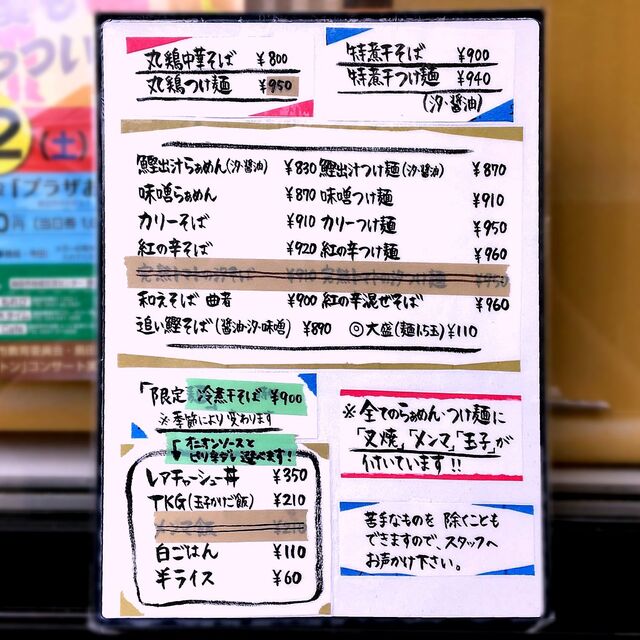 丸鶏中華そば ¥800
丸鶏つけ麺 ¥950
特煮干そば ¥900
特煮干つけ麺 ¥940
(汐・醤油)
鰹出汁らぁめん(汐・醤油) ¥830 鰹出汁つけ麺(汐・醤油) ¥870
味噌らぁめん ¥870 味噌つけ麺 ¥910
カリーそば ¥910 カリーつけ麺 ¥950
紅の辛そば ¥920 紅の辛つけ麺 ¥960
完熟トマトの汐そば ¥910 完熟トマトの汐つけ麺 ¥950
和えそば 曲者 ¥900 紅の辛混ぜそば ¥960
追い鰹そば(醤油・汐・味噌) ¥890 ◎大盛(麺1.5玉)¥110
「限定 冷煮干そば ¥900
※季節により変わります
オニオンソースと
ピリ辛ダレ選べます!
レアチャーシュー丼 ¥350
TKG(玉子かけご飯) ¥210
メンマ飯 ¥210
白ごはん ¥110
半ライス ¥60
※全てのらぁめん・つけ麺に
「叉焼」「メンマ」「玉子」が
付いています!!
苦手なものを除くことも
できますので、スタッフへ
お声かけ下さい。
2(土)